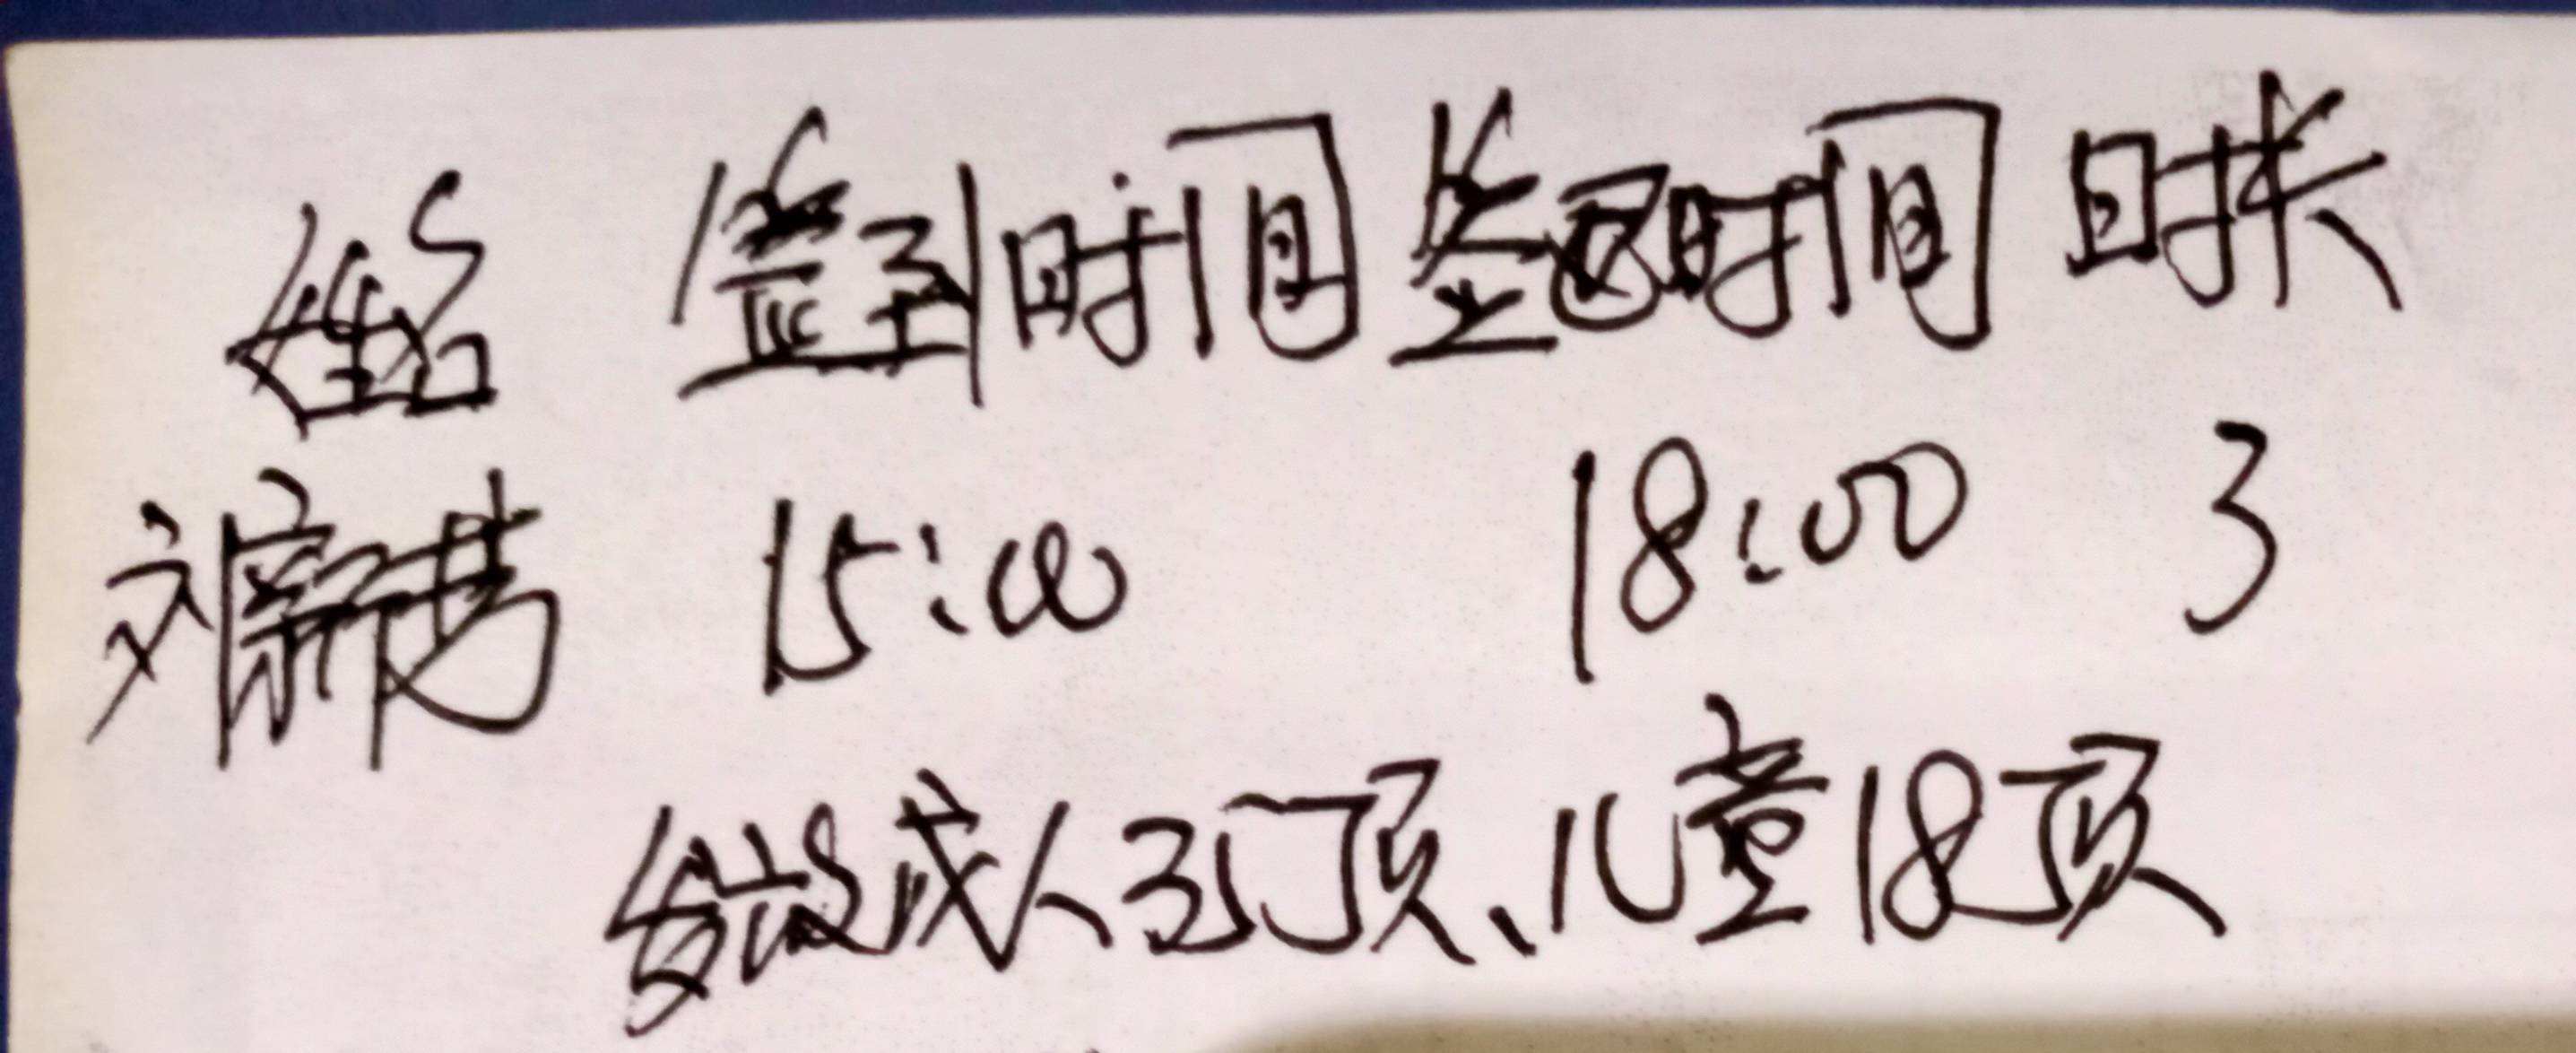 姓名 签到时间 签退时间 时长
刘新芳 15:00 18:00 3
发放成人35顶、儿童18顶